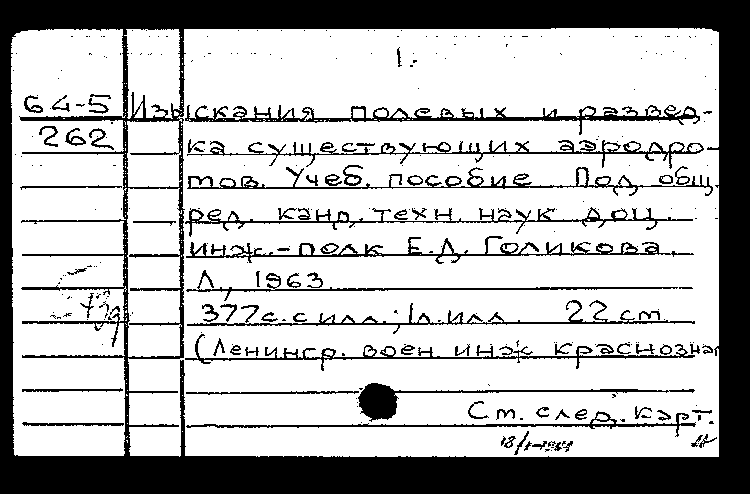 1.
64-5 Изыскания полевых и развед-
262 ка существующих аэродро-
мов. Учеб. пособие Под общ.
ред. канд. техн. наук доц.
инж.-полк Е.Д. Голикова.
Л., 1963.
377с. с илл.; 1л. илл. 22 см.
(Ленингр. воен. инж краснозна
См. след. карт.